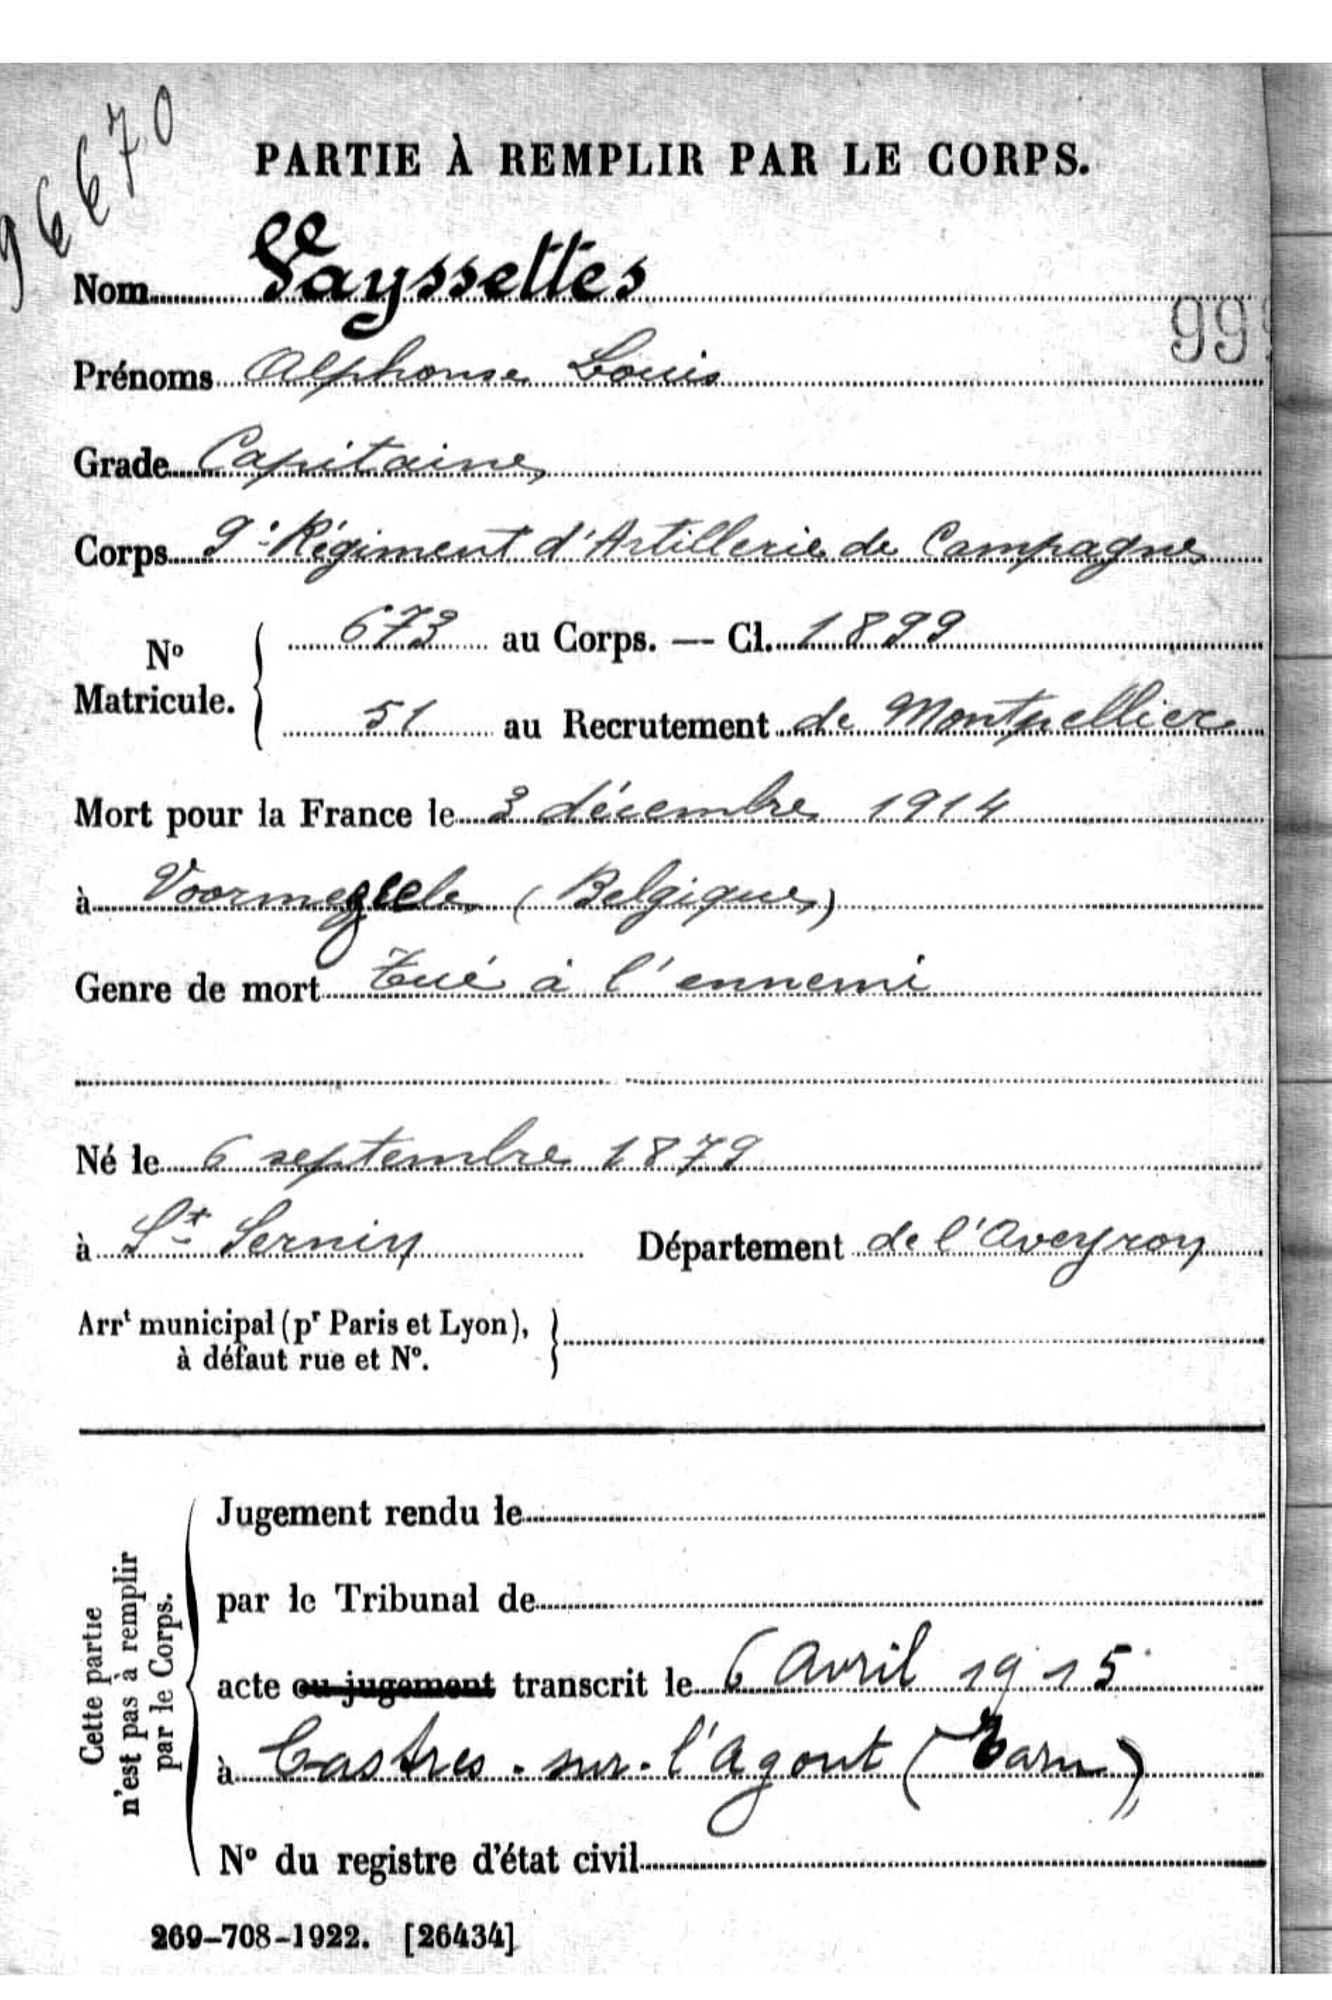 96670
PARTIE À REMPLIR PAR LE CORPS.
Nom Vayssettes
99
Prénoms Alphonse Louis
Grade Capitaine
Corps 9e Régiment d'Artillerie de Campagne
Nº Matricule. 673 au Corps. — Cl. 1899
51 au Recrutement de Montpellier
Mort pour la France le 3 décembre 1914
à Voormezeele (Belgique)
Genre de mort Tué à l'ennemi
Né le 6 septembre 1879
à St Sernin Département de l'Aveyron
Arrt municipal (pr Paris et Lyon),
à défaut rue et Nº.
Cette partie
n'est pas à remplir
par le Corps.
Jugement rendu le
par le Tribunal de
acte ou jugement transcrit le 6 Avril 1915
à Castres-sur-l'Agout (Tarn)
Nº du registre d'état civil
269-708-1922. [26434]